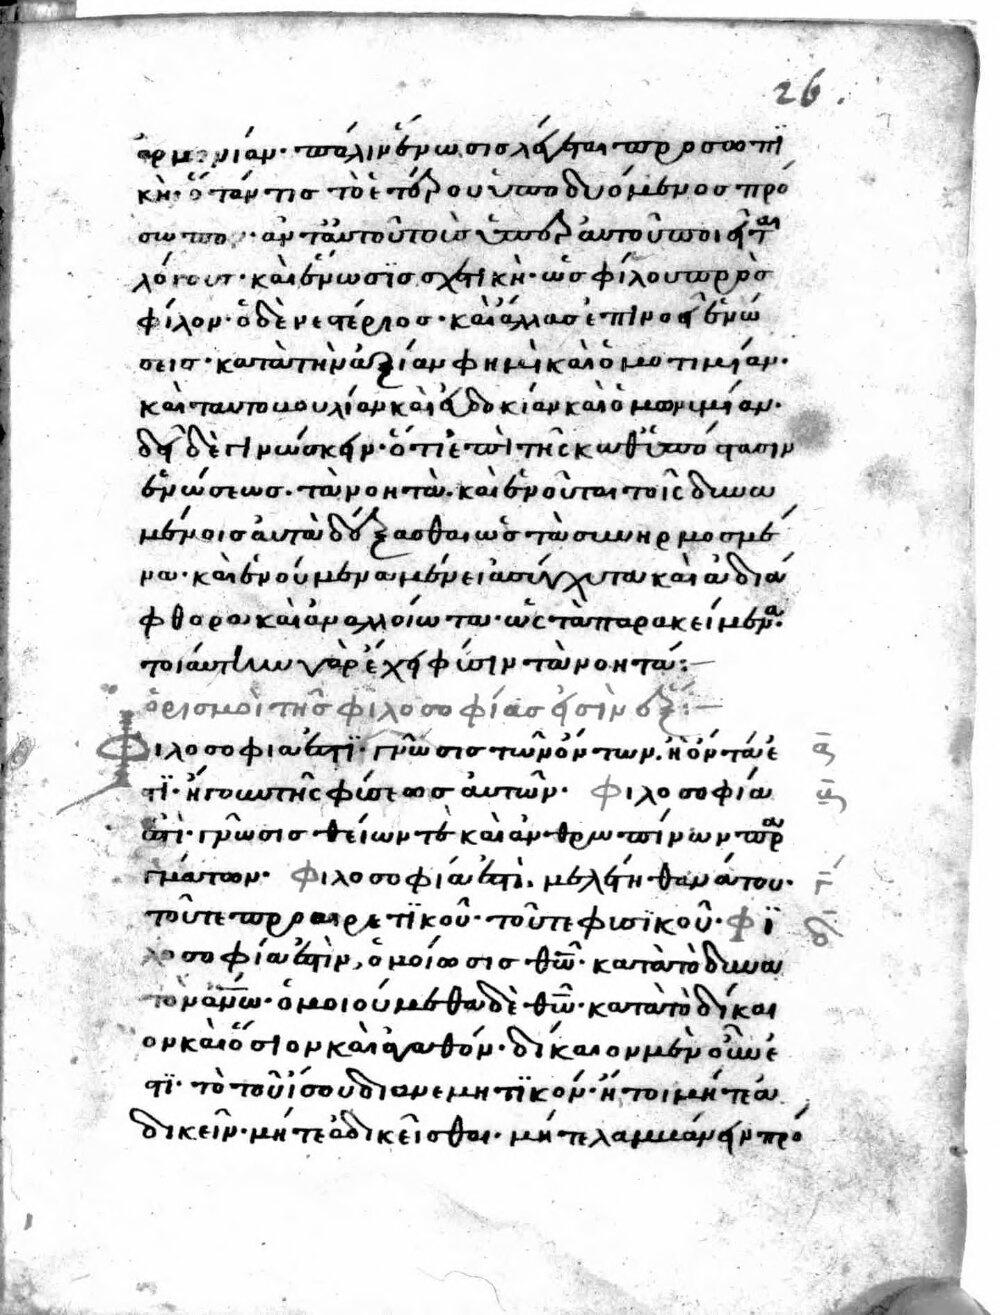 26.
ἁρμονίαν· πάλιν ἕνωσις λέγεται προσωπι
κὴ· ὅταν τις τὸ ἑτέρου ὑποδυόμενος πρό
σωπον· ἀντ' αὐτοῦ τοὺς ὑπὲρ αὐτοῦ ποιεῖται
λόγους· καὶ ἕνωσις σχετικὴ· ὡς φίλου πρὸς
φίλον· ὁ δὲ νεστόριος· καὶ ἄλλας ἐπινοεῖ ἑνώ
σεις· κατὰ τὴν ἀξίαν φημὶ καὶ ὁμοτιμίαν·
καὶ ταυτοβουλίαν καὶ εὐδοκίαν καὶ ὁμωνιμίαν·
δεῖ δὲ γινώσκειν· ὅτι ἐπὶ τῆς καθ' ὑπόστασιν
ἑνώσεως· τὰ νοητὰ· καὶ ἑνοῦται τοῖς δυνα
μένοις αὐτὰ δέξασθαι ὡς τὰ συνηρμοσμέ
να· καὶ ἑνούμενα μένει ἀσύγχυτα καὶ ἀδιά
φθορα καὶ ἀναλλοίωτα· ὡς τὰ παρακείμενα·
τοιαύτην γὰρ ἔχει φύσιν τὰ νοητά:—
ὁρισμοὶ τῆς φιλοσοφίας εἰσὶν ἕξ:—
Φιλοσοφία ἐστὶ· γνῶσις τῶν ὄντων· ἢ ὄντα ἐ
στὶ· ἤγουν τῆς φύσεως αὐτῶν· Φιλοσοφία
ἐστὶ· γνῶσις θείων τὲ καὶ ἀνθρωπίνων πρα
γμάτων· Φιλοσοφία ἐστὶ· μελέτη θανάτου·
τοῦ τε προαιρετικοῦ· τοῦ τε φυσικοῦ· Φι
λοσοφία ἐστὶν, ὁμοίωσις θῶ· κατὰ τὸ δυνα
τὸν ἀνῶ· ὁμοιούμεθα δὲ θῶ· κατὰ τὸ δίκαι
ον καὶ ὅσιον καὶ ἀγαθόν· δίκαιον μὲν οὖν ἐ
στὶ· τὸ τοῦ ἴσου διανεμητικόν· ἤτοι μήτε ἀ
δικεῖν· μήτε ἀδικεῖσθαι· μήτε λαμβάνειν πρό